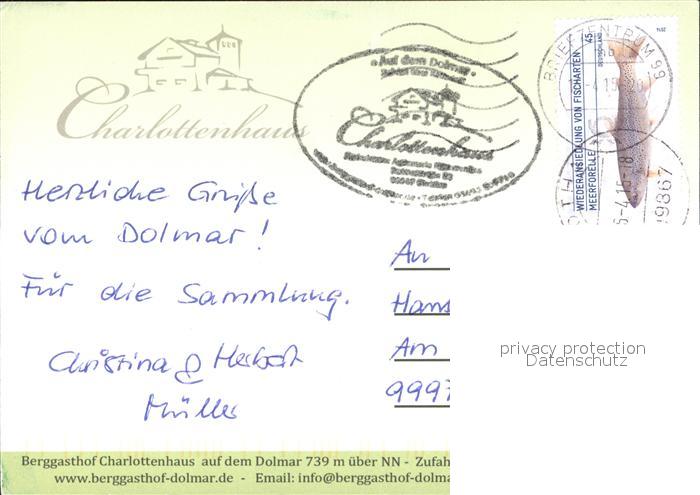 Charlottenhaus
Auf dem Dolmar
Charlottenhaus
45
DEUTSCHLAND
2014
WIEDERANSIEDLUNG VON FISCHARTEN
MEERFORELLE
BRIEFZENTRUM 99
Herzliche Grüße
vom Dolmar!
Für die Sammlung.
Christina & Herbert
Müller
An
Hans
Am
9997
privacy protection
Datenschutz
Berggasthof Charlottenhaus auf dem Dolmar 739 m über NN - Zufah
www.berggasthof-dolmar.de - Email: info@berggasthof-dolma